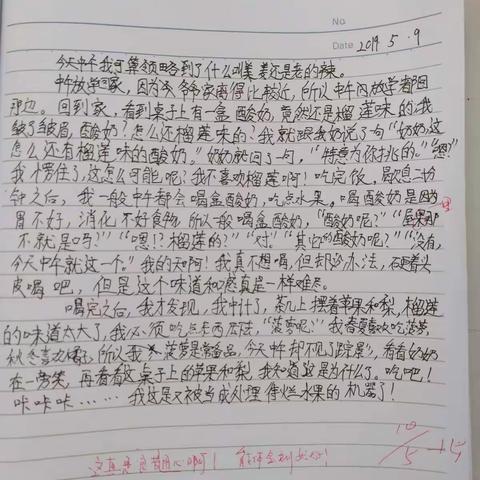 No
Date 2019 5.9
今天中午我可算领略到了什么叫姜还是老的辣。
中午放学回家,因为爷爷家离得比较近,所以中午放学都回
那边。回到家,看到桌子上有一盒酸奶,竟然还是榴莲味的,我
皱了皱眉,酸奶?怎么还榴莲味的?我就跟我奶说了句"奶奶,这
怎么还有榴莲味的酸奶。"奶奶就回了一句,"特意为你挑的。""嗯?"
我愣住了,这怎么可能呢?我不喜欢榴莲啊!吃完饭,歇息二十分
钟之后,我一般中午都会喝盒酸奶,吃点水果。喝酸奶是因为
胃不好,消化不好食物,所以一般喝盒酸奶,"酸奶呢?""屋里那
不就是吗?""嗯!?榴莲的?""对。""其它的酸奶呢?""没有,
今天中午就这一个。"我的天啊!我真不想喝,但却没办法,硬着头
皮喝吧,但是这个味道和感觉真是一样难忘。
喝完之后,我才发现,我中计了,茶几上摆着苹果和梨,榴莲
的味道太大了,我必须吃点东西压压,"菠萝呢?"我春夏喜欢吃菠萝,
秋冬喜欢橘子,所以我家菠萝是常备品,今天中午却不见了踪影,看看奶奶
在一旁笑,再看看这桌子上的苹果和梨,我知道这是为什么了。吃吧!
咔咔咔……我这是又被当成处理待烂水果的机器了!
10/5